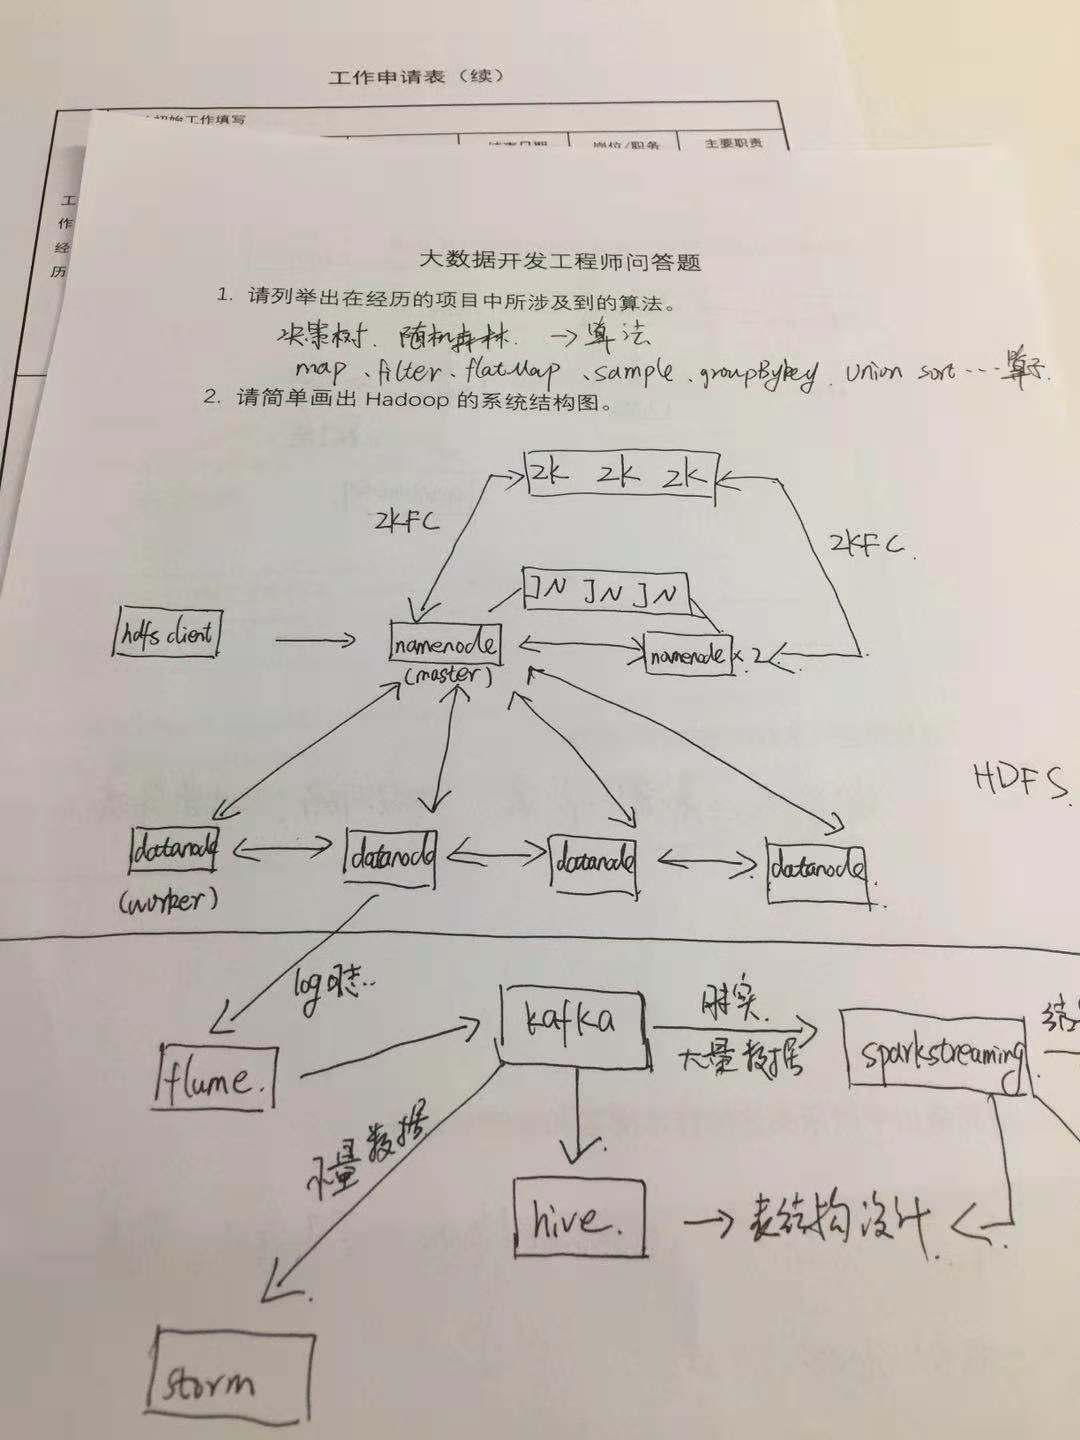 工作申请表（续）
初始工作填写
岗位/职务 主要职责
工
作
经
历
大数据开发工程师问答题
1. 请列举出在经历的项目中所涉及到的算法。
决策树、随机森林 → 算法
map、filter、flatMap、sample、groupBykey、union sort … 算子.
2. 请简单画出 Hadoop 的系统结构图。
ZK ZK ZK
ZKFC
ZKFC.
JN JN JN
hdfs client
namenode
namenode × 2
(master)
HDFS.
datanode datanode datanode datanode
(worker)
log日志..
kafka
时实
大量数据
sparkstreaming
flume.
量数据
hive. → 表结构设计
storm